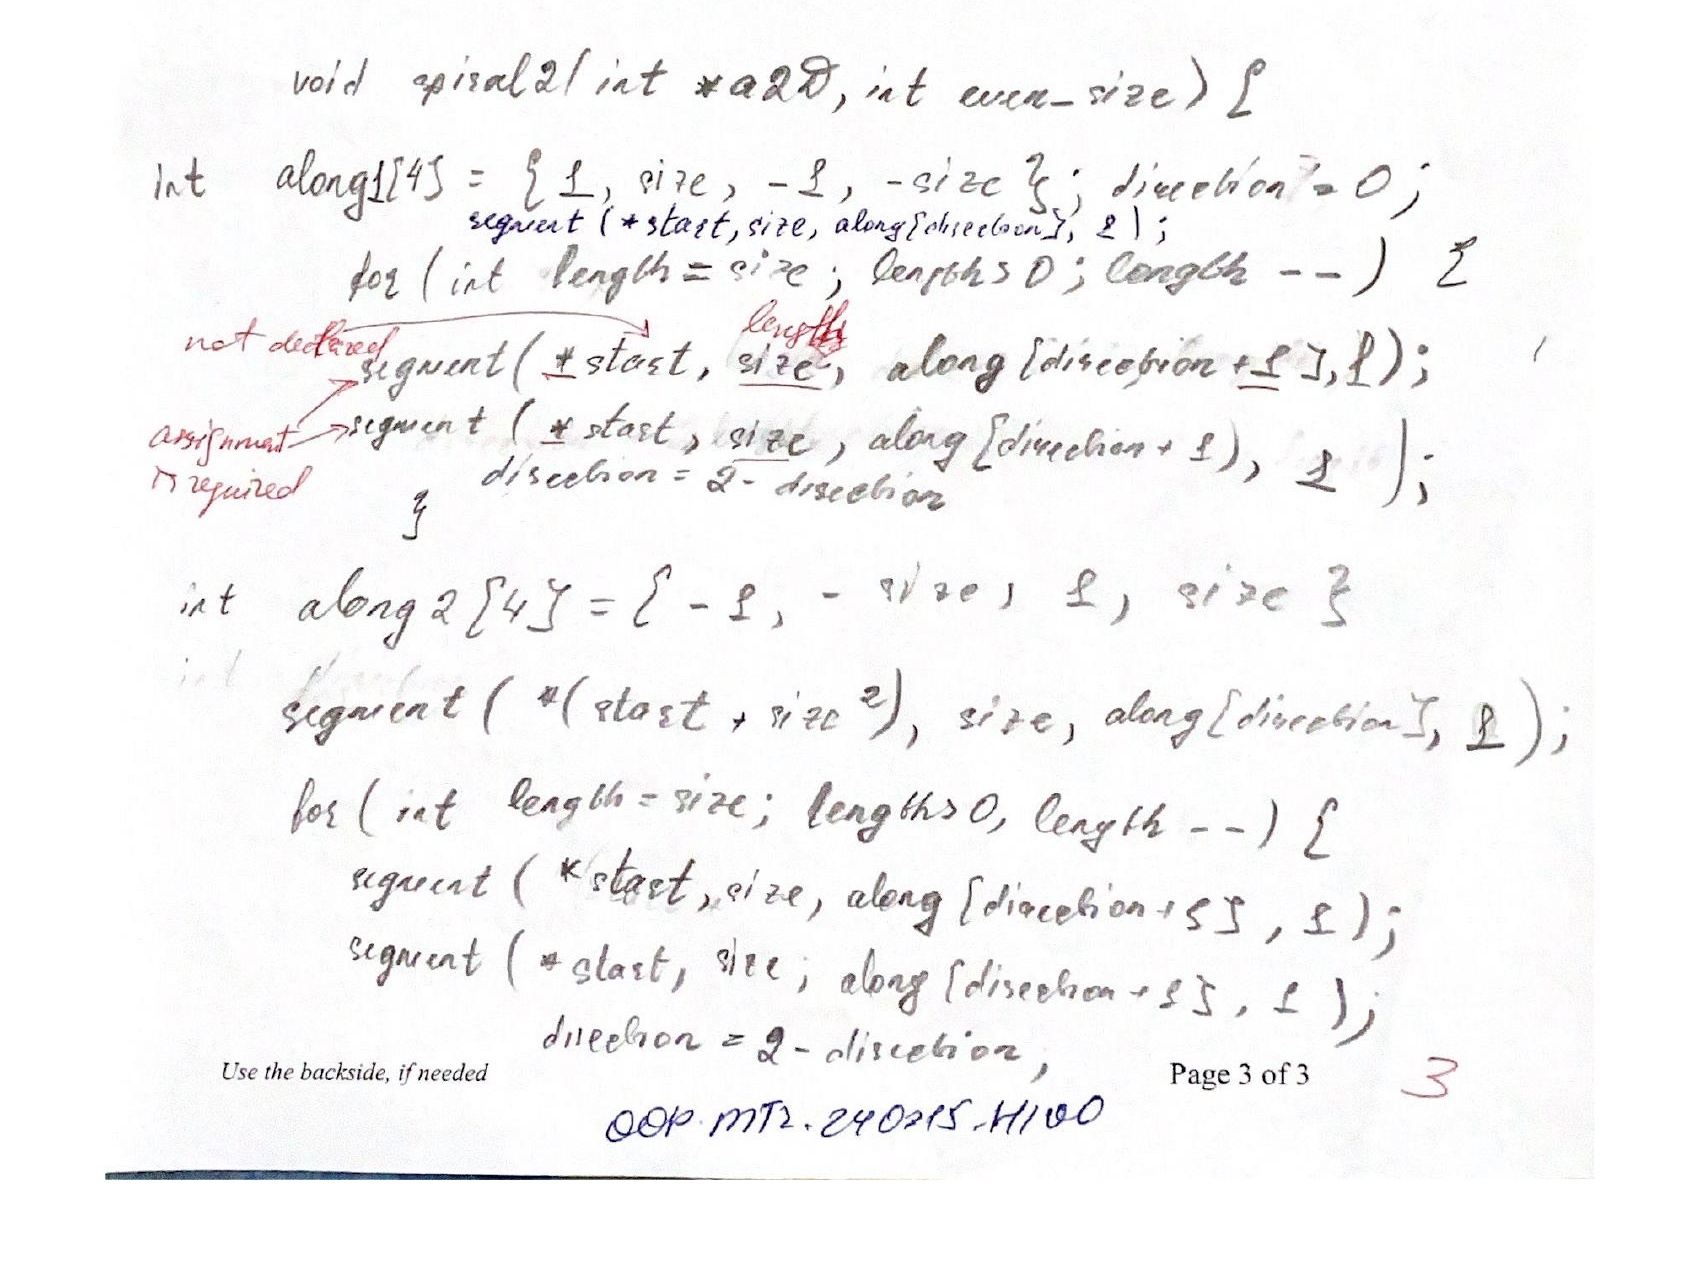 void spiral2( int *a2D, int even_size) {
int along1[4] = { 1, size, -1, -size }; direction = 0;
segment (*start, size, along[direction], 1);
for (int length = size; length > 0; length --) {
not declared length
segment( *start, size, along [direction + 1], 1);
assignment is required
segment ( *start, size, along [direction + 1), 1 );
direction = 2 - direction
}
int along2 [4] = { -1, - size, 1, size }
segment ( *(start + size²), size, along[direction], 1 );
for ( int length = size; length > 0, length --) {
segment ( *start, size, along [direction + 1], 1 );
segment ( *start, size, along [direction + 1], 1 );
direction = 2 - direction,
Use the backside, if needed Page 3 of 3 3
OOP.MT2.240215.H100